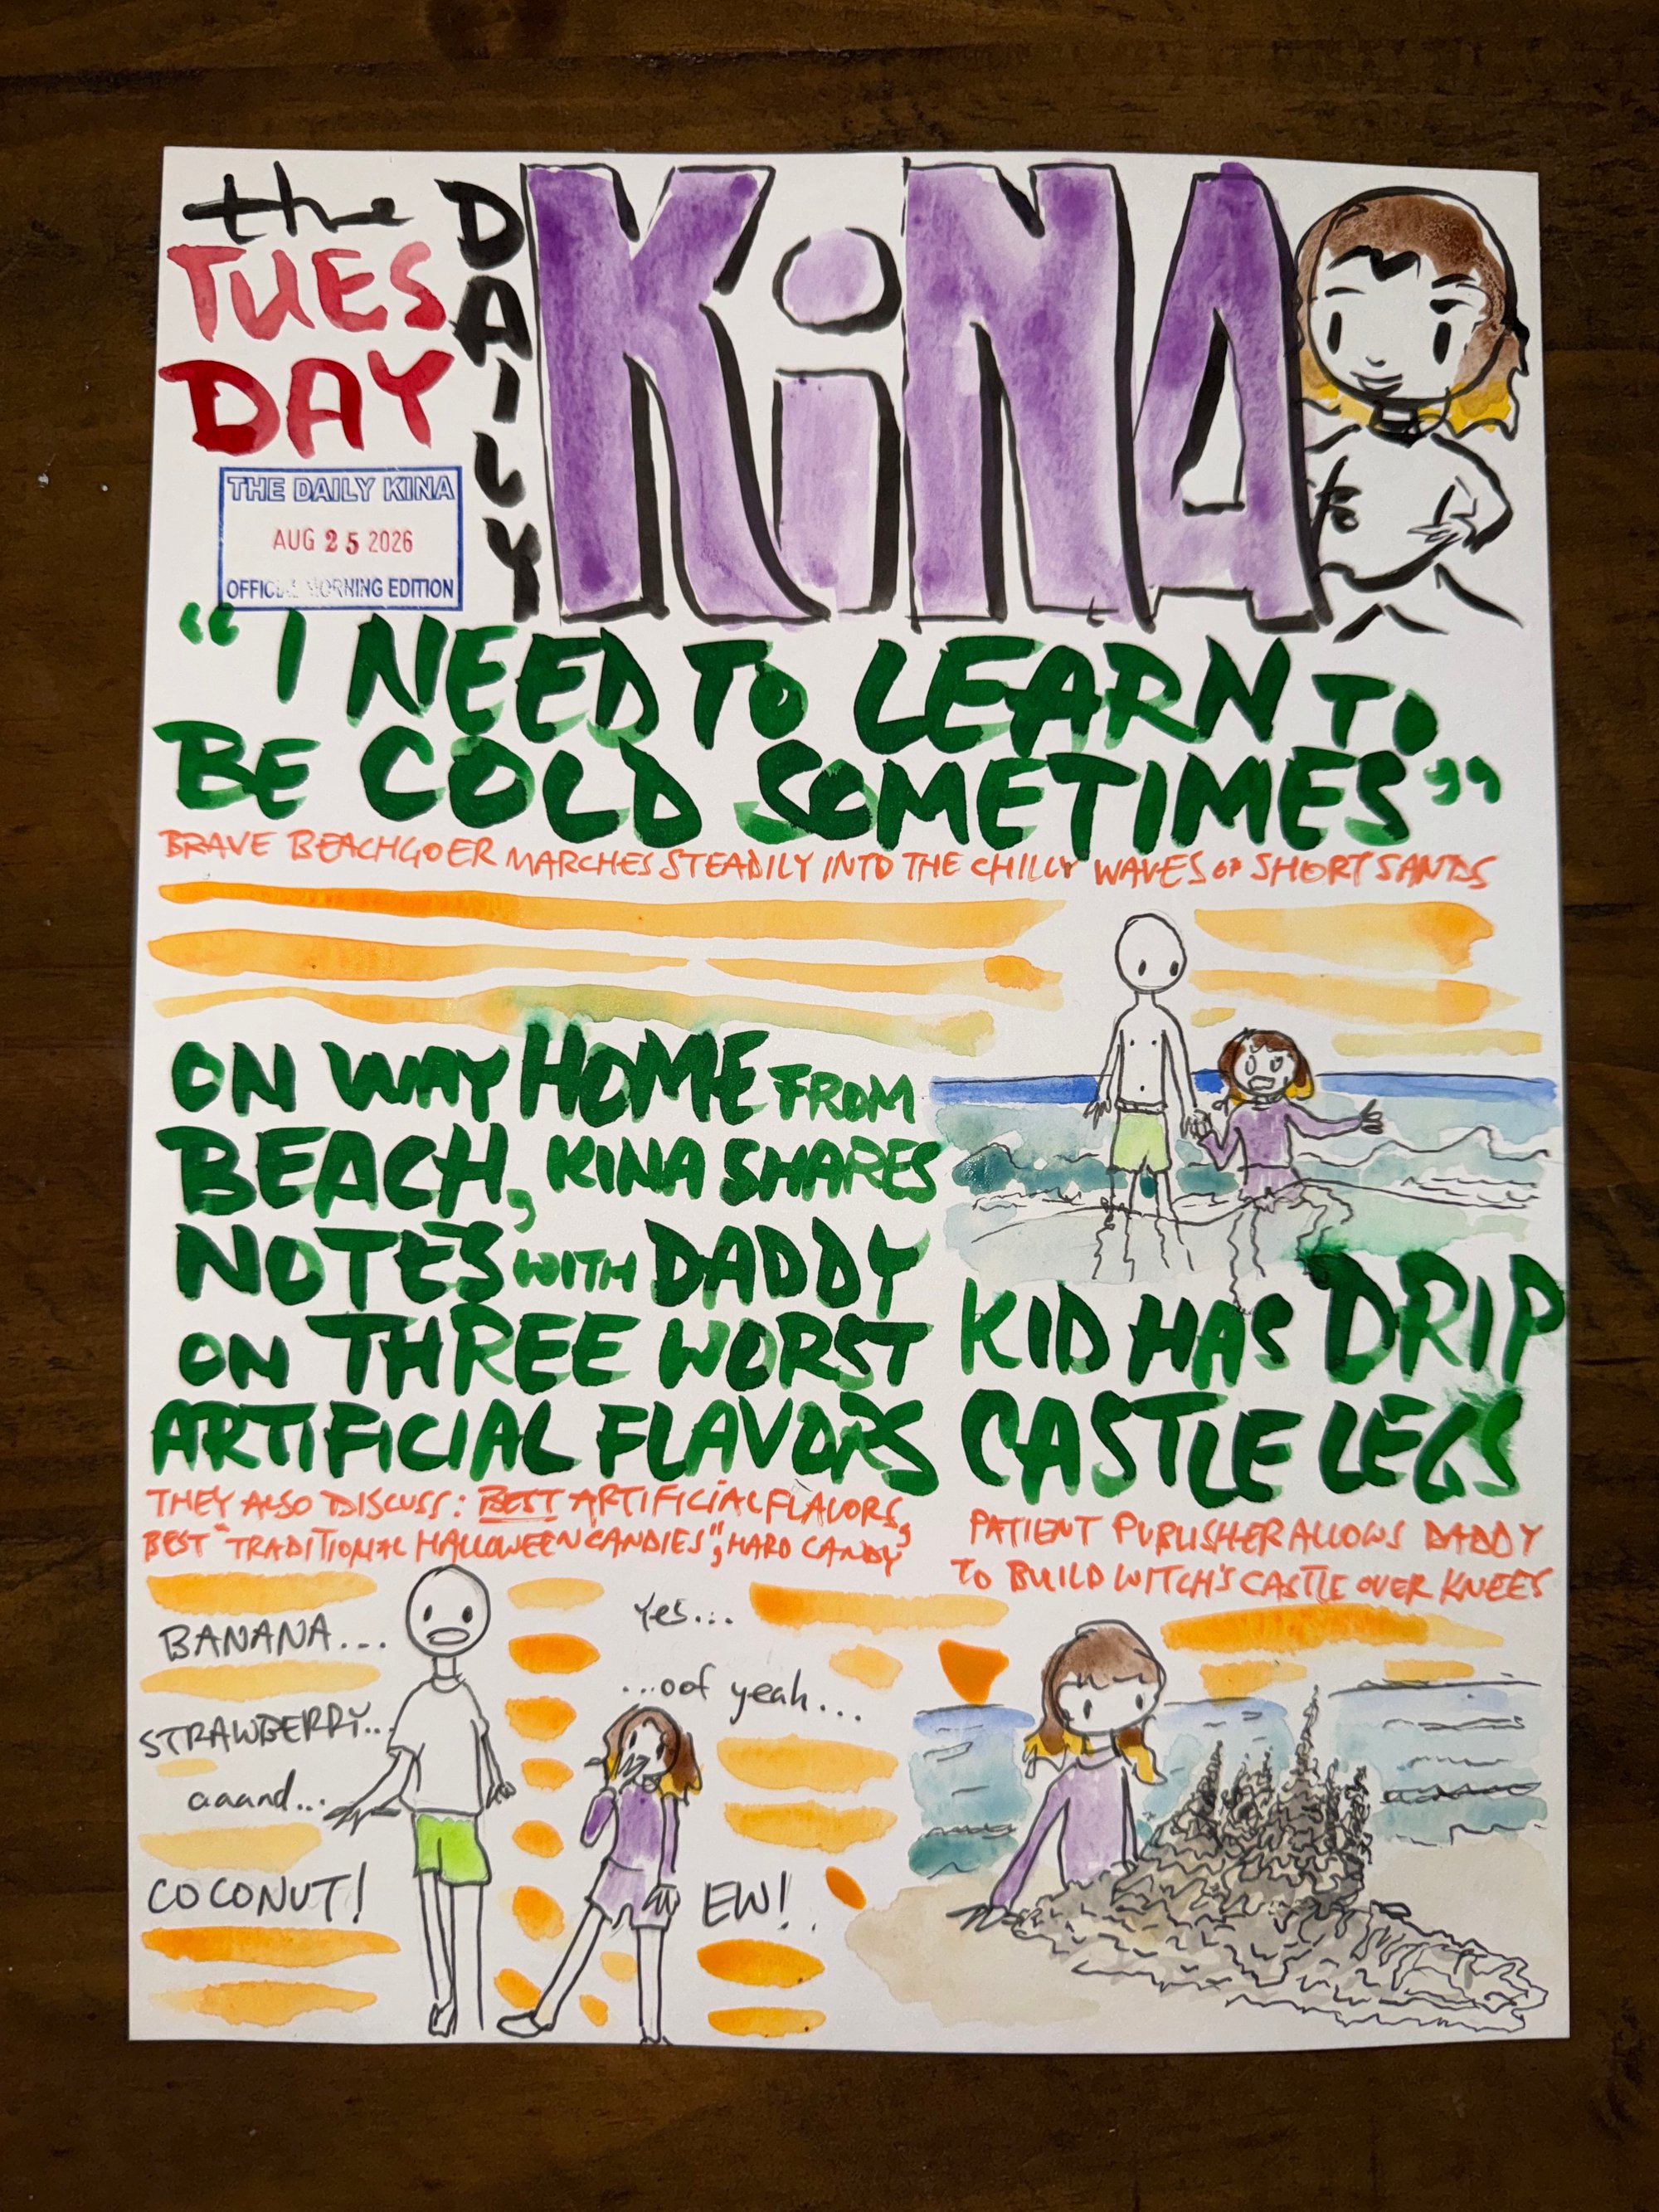 the
TUES
DAY
DAILY
KiNA
THE DAILY KINA
AUG 25 2026
OFFICIAL MORNING EDITION
"I NEED TO LEARN TO
BE COLD SOMETIMES"
BRAVE BEACHGOER MARCHES STEADILY INTO THE CHILLY WAVES OF SHORT SANDS
ON WAY HOME FROM
BEACH, KINA SHARES
NOTES WITH DADDY
ON THREE WORST
ARTIFICIAL FLAVORS
THEY ALSO DISCUSS: BEST ARTIFICIAL FLAVORS,
BEST "TRADITIONAL HALLOWEEN CANDIES", HARD CANDY
BANANA...
Yes...
STRAWBERRY...
...oof yeah...
aaand...
COCONUT!
EW!
KID HAS DRIP
CASTLE LEGS
PATIENT PUBLISHER ALLOWS DADDY
TO BUILD WITCH'S CASTLE OVER KNEES